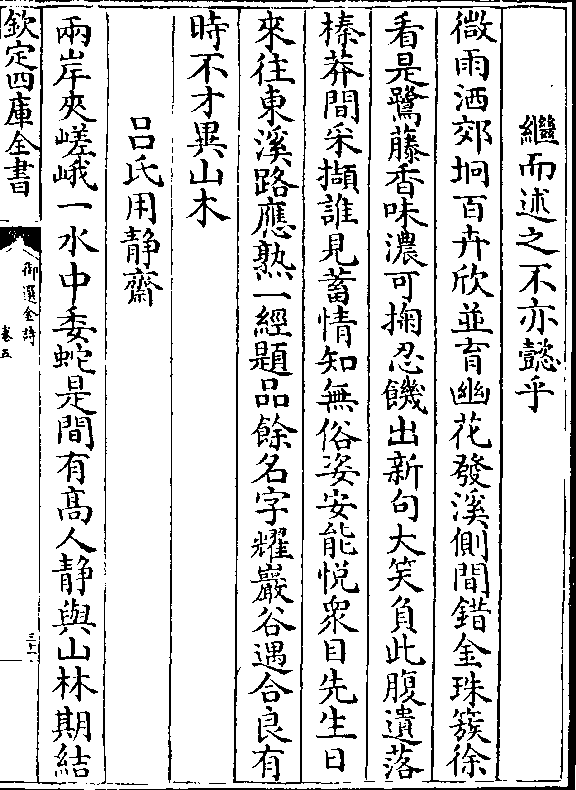 繼而述之不亦懿乎
微雨洒郊坰百卉欣並育幽花發溪側間錯金珠簇徐
看是鷺藤香味濃可掬忍饑出新句大笑負此腹遺落
榛莽間采擷誰見蓄情知無俗姿安能悅衆目先生日
來往東溪路應熟一經題品餘名字耀巖谷遇合良有
時不才異山木
吕氏用静齋
兩岸夾嵯峨一水中委蛇是間有髙人静與山林期結
欽定四庫全書
御選金詩
卷五